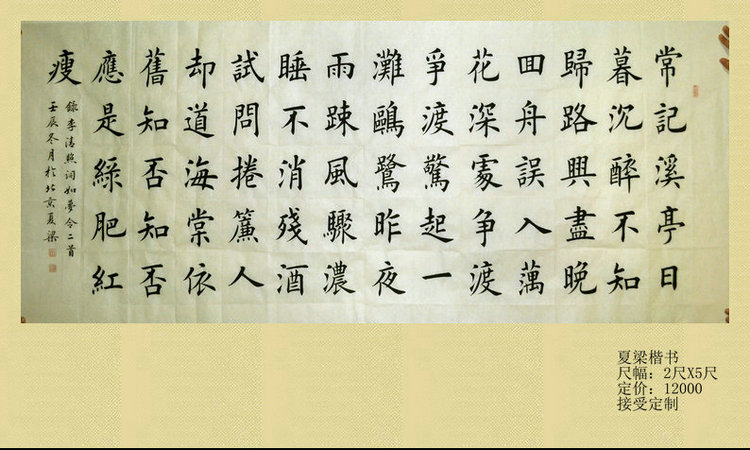 常記溪亭日
暮沉醉不知
歸路興盡晚
囬舟誤入藕
花深處争渡
爭渡驚起一
灘鷗鷺昨夜
雨踈風驟濃
睡不消殘酒
試問捲簾人
却道海棠依
舊知否知否
應是綠肥紅
瘦
錄李清照詞如夢令二首
壬辰冬月於北京夏梁
夏梁楷书
尺幅：2尺X5尺
定价：12000
接受定制